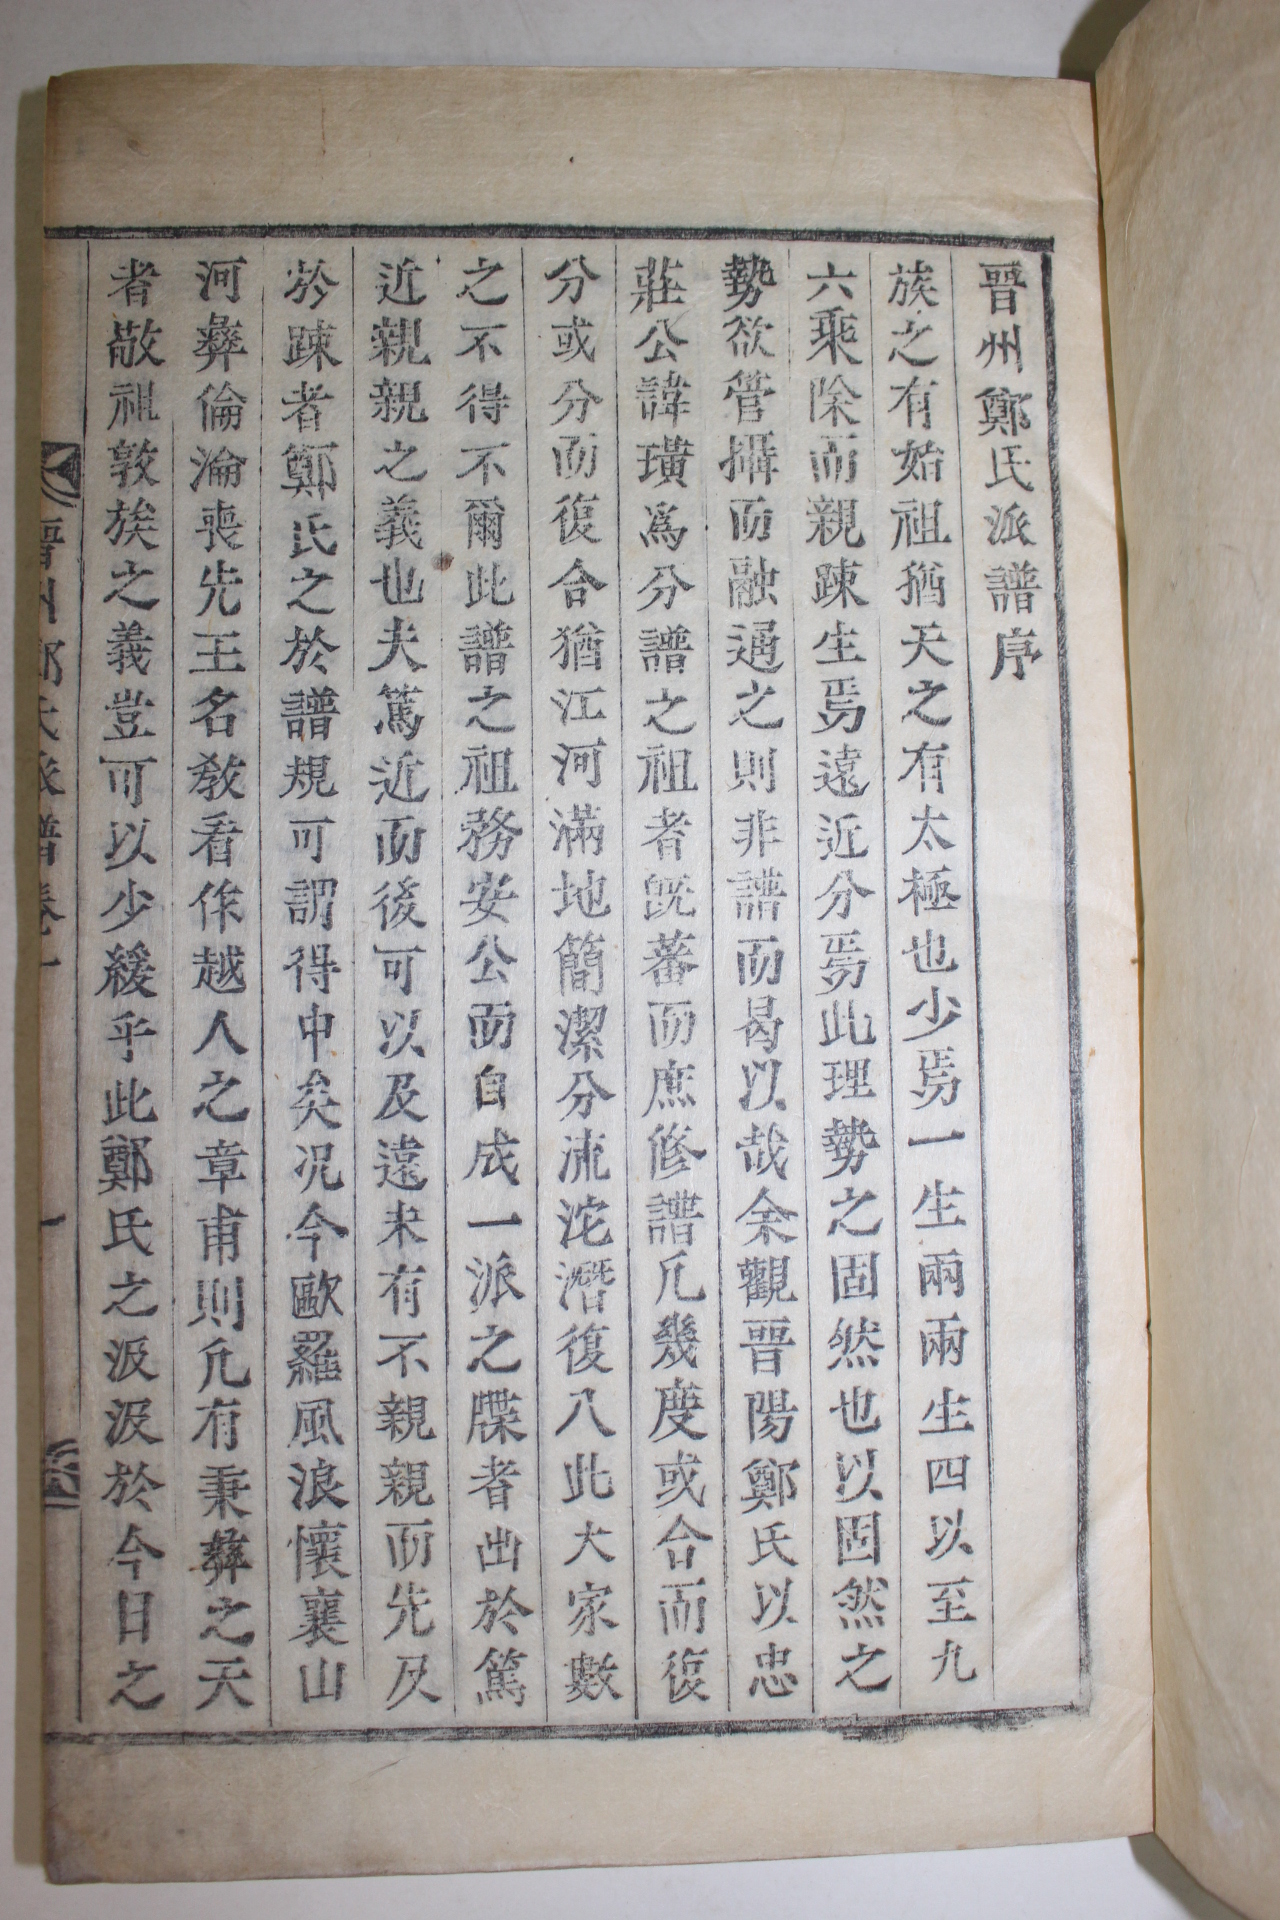 晉州鄭氏派譜序
族之有始祖猶天之有太極也少焉一生兩兩生四以至九
六乘除而親踈生焉遠近分焉此理勢之固然也以固然之
勢欲管攝而融通之則非譜而曷以哉余觀晋陽鄭氏以忠
莊公諱璜爲分譜之祖者旣蕃而庶修譜凡幾度或合而復
分或分而復合猶江河滿地簡潔分流沱潛復入此大家數
之不得不爾此譜之祖務安公而自成一派之牒者出於篤
近親親之義也夫篤近而後可以及遠未有不親親而先及
於踈者鄭氏之於譜規可謂得中矣况今歐羅風浪懷襄山
河彛倫淪喪先王名敎看作越人之章甫則凡有秉彛之天
者敬祖敦族之義豈可以少緩乎此鄭氏之汲汲於今日之
晋州鄭氏派譜卷一
一